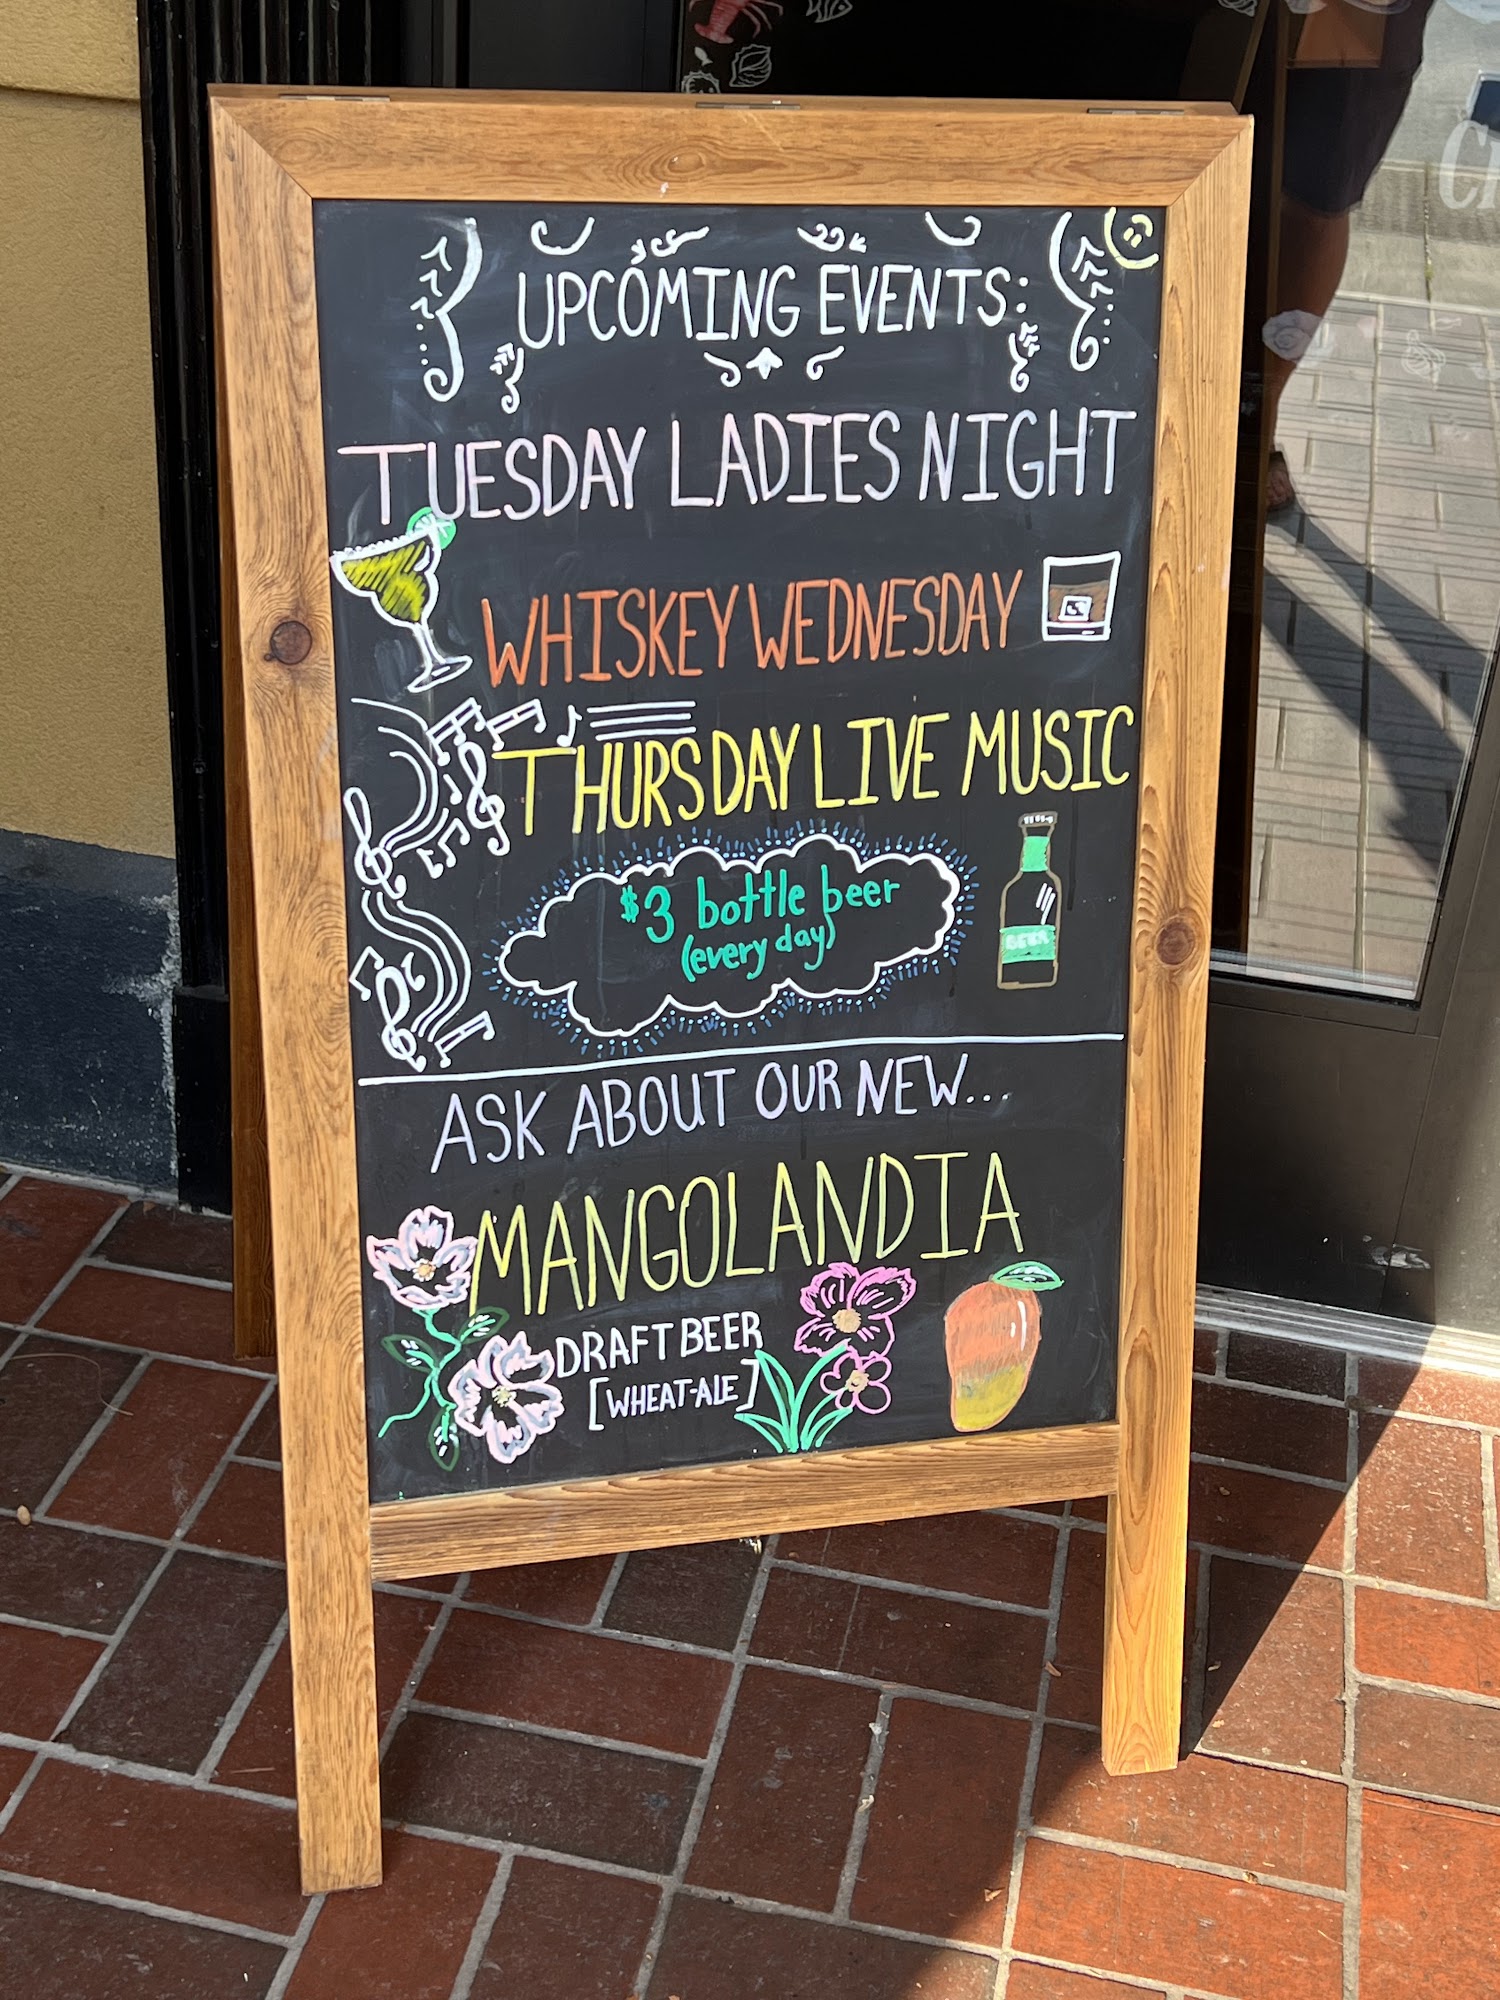 UPCOMING EVENTS:
TUESDAY LADIES NIGHT
WHISKEY WEDNESDAY
THURSDAY LIVE MUSIC
$3 bottle beer
(every day)
BEER
ASK ABOUT OUR NEW...
MANGOLANDIA
DRAFT BEER
[WHEAT-ALE]